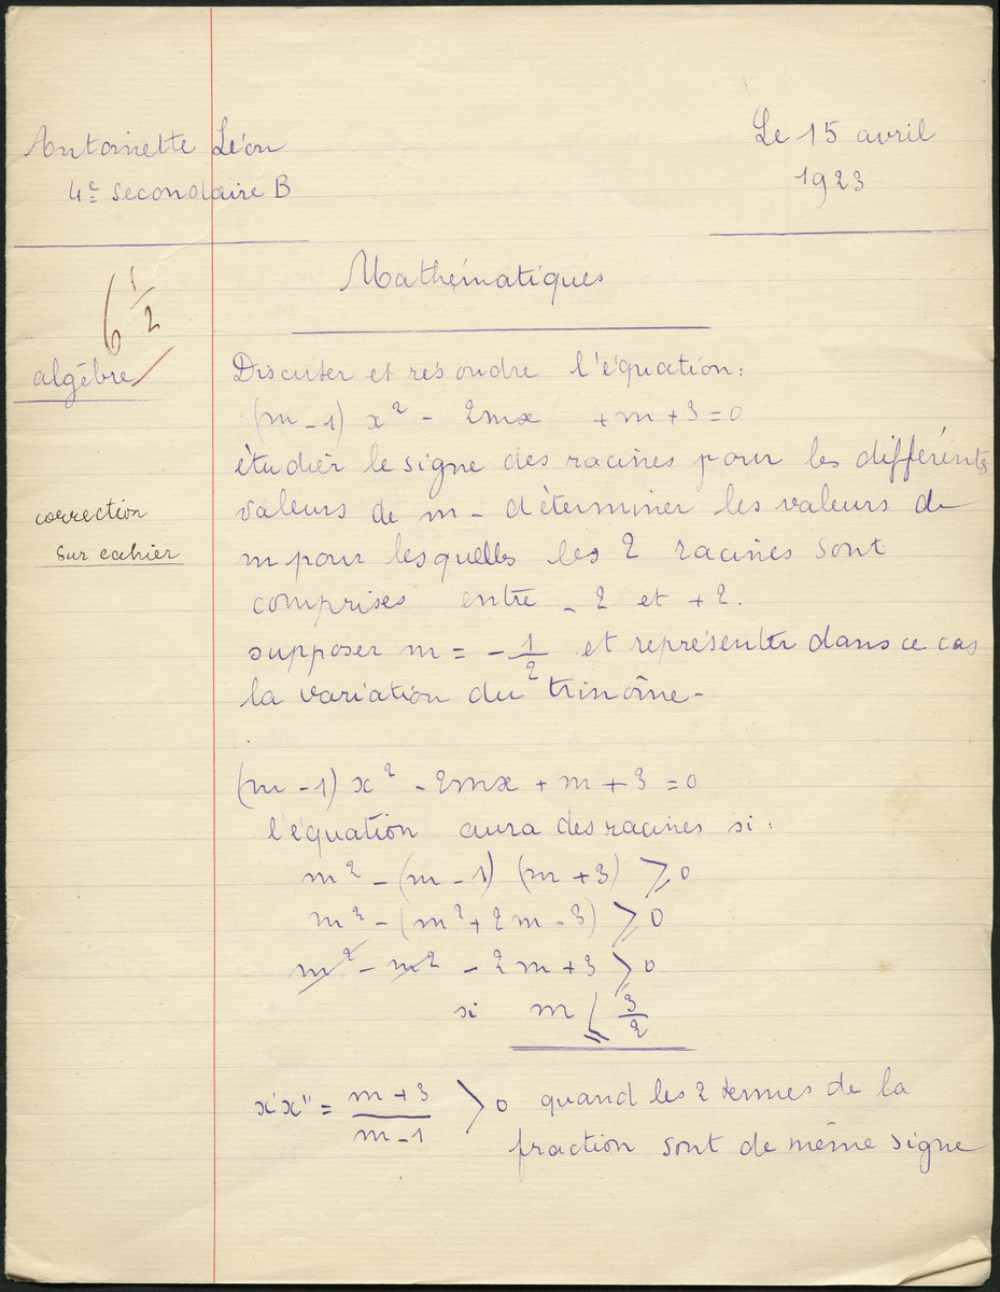 Antoinette Léon
4e secondaire B
Le 15 avril
1923
Mathématiques
6 1/2
algèbre
Discuter et résoudre l'équation:
(m-1) x² - 2mx + m + 3 = 0
étudier le signe des racines pour les différents
valeurs de m - déterminer les valeurs de
m pour lesquelles les 2 racines sont
comprises entre - 2 et + 2.
supposer m = - 1/2 et représenter dans ce cas
la variation du trinôme -
correction
sur cahier
(m - 1) x² - 2mx + m + 3 = 0
l'équation aura des racines si:
m² - (m - 1) (m + 3) ⩾ 0
m² - (m² + 2m - 3) ⩾ 0
m² - m² - 2m + 3 ⩾ 0
si m ⩽ 3/2
x'x" = m + 3 / m - 1 > 0 quand les 2 termes de la
fraction sont de même signe